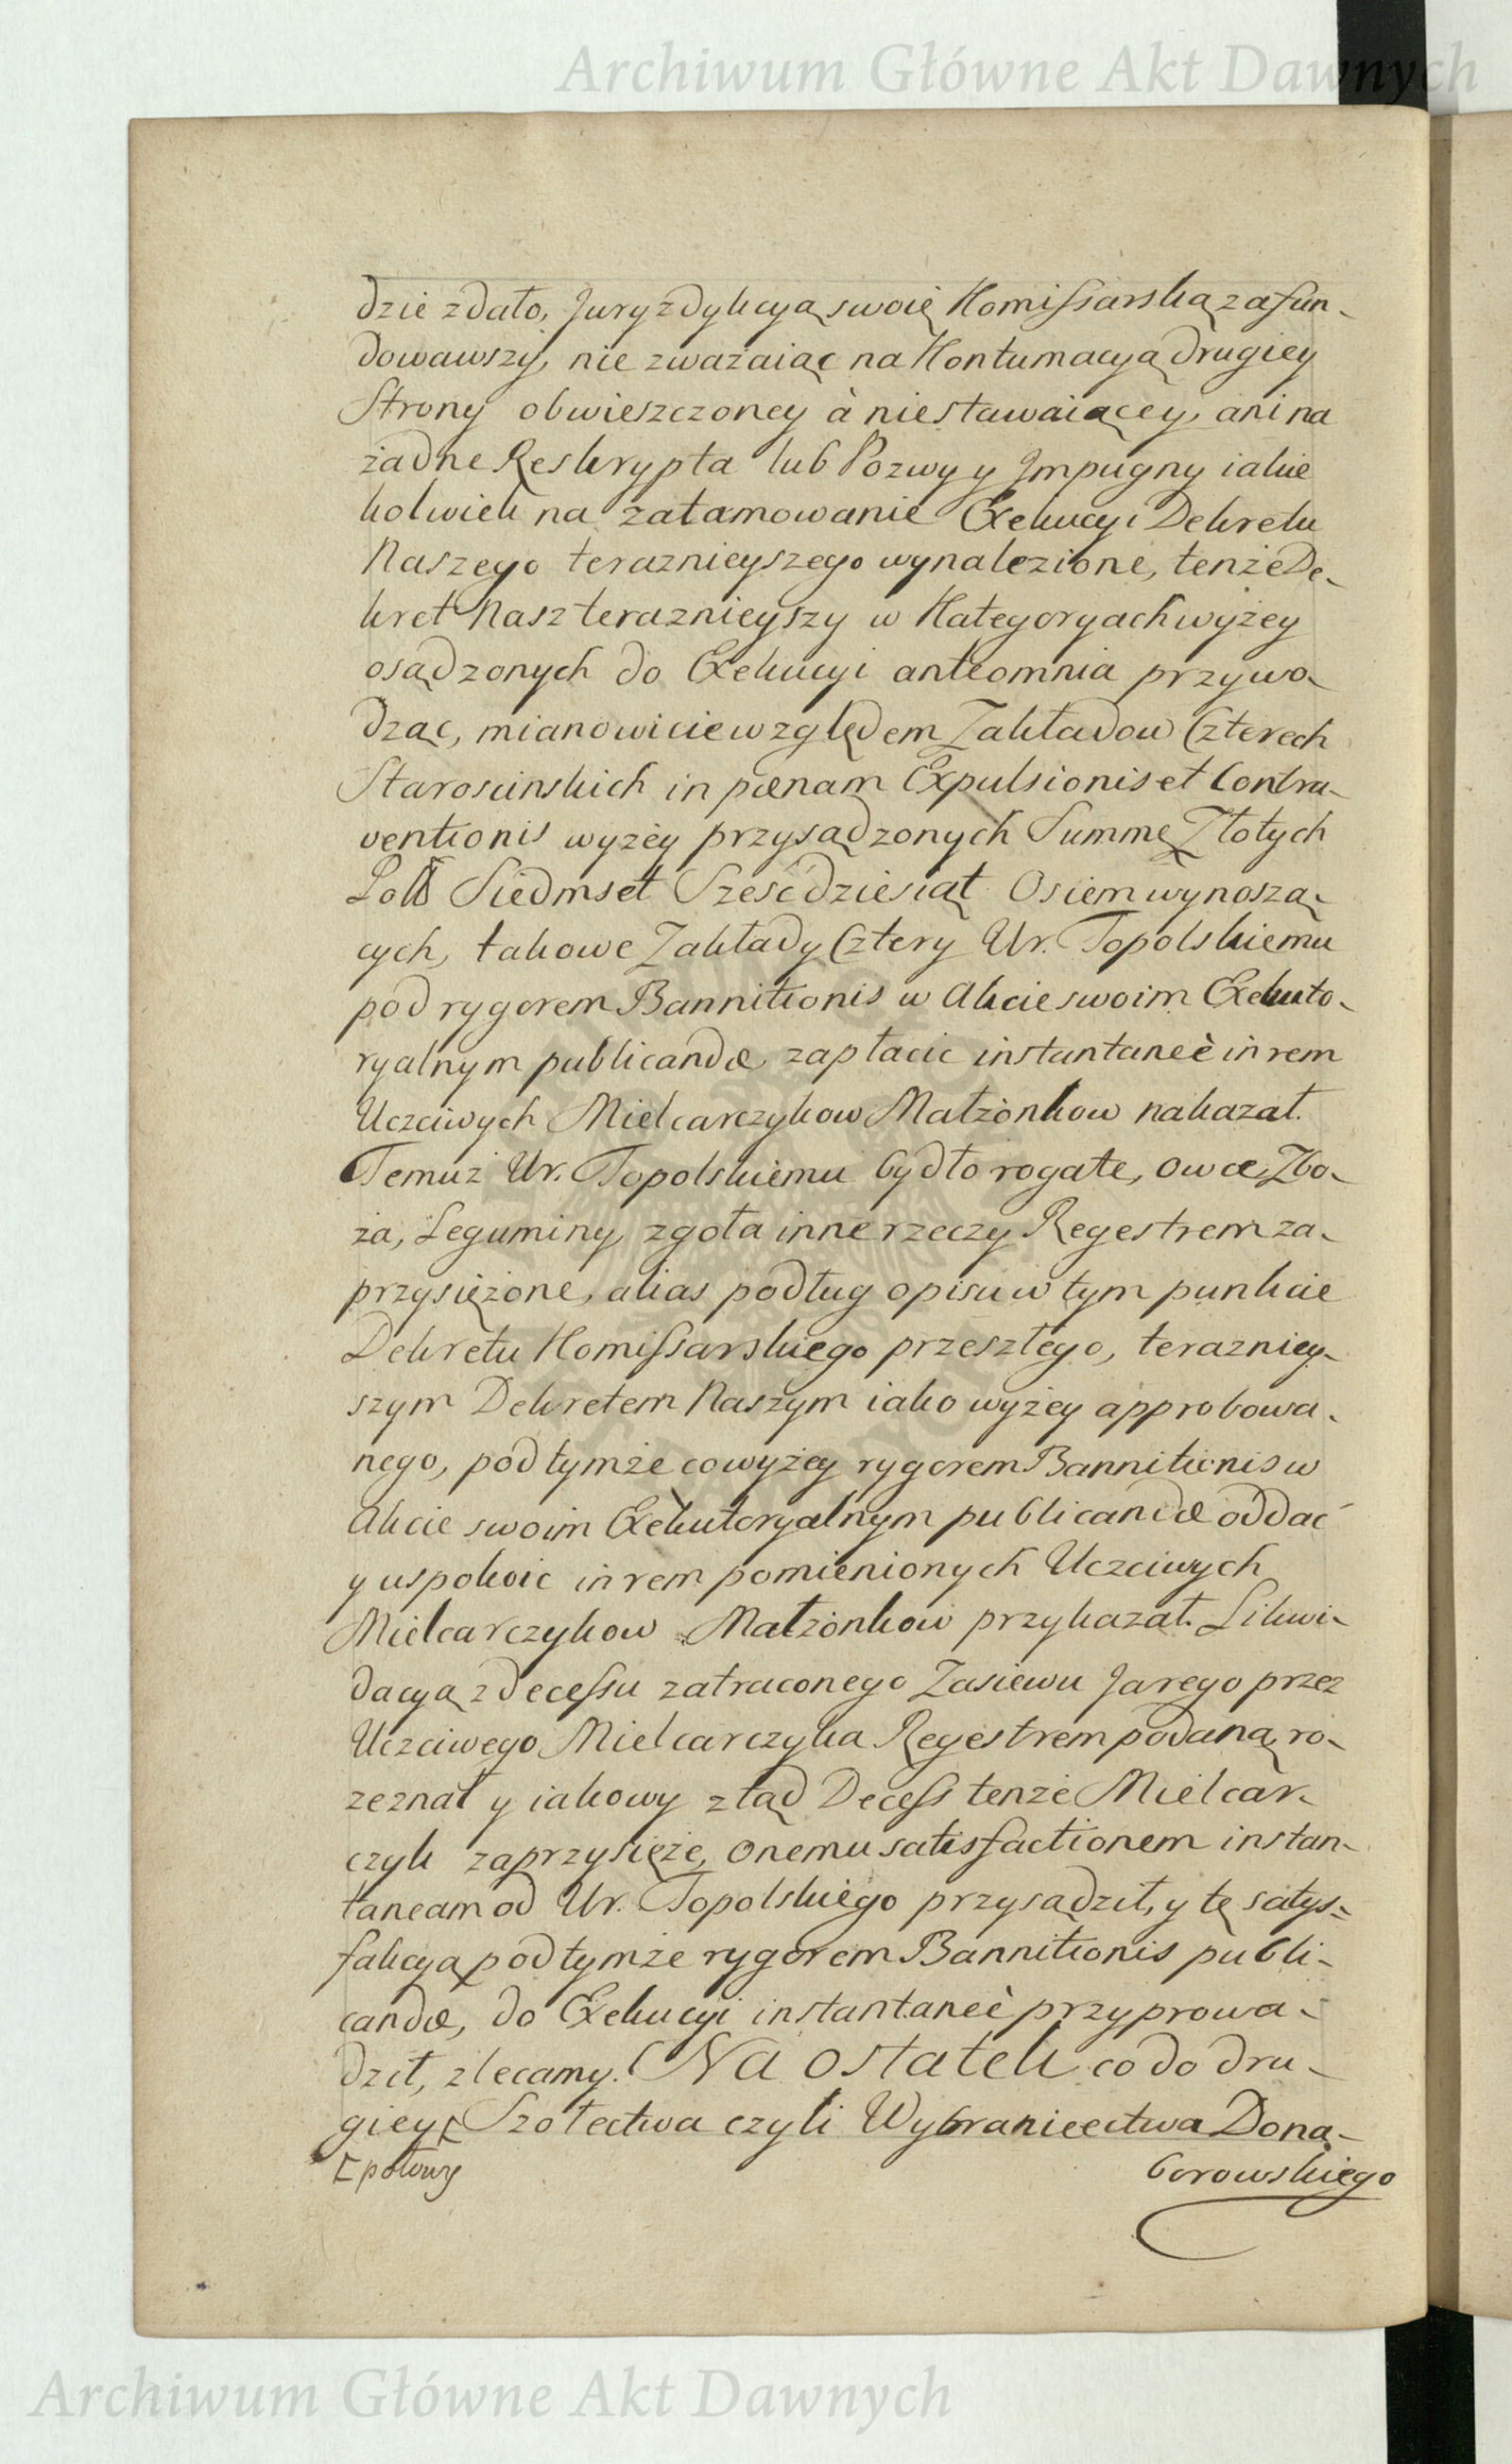 Archiwum Główne Akt Dawnych
dzie zdało, Juryzdykcyą swoię Kommissarską zafun-
dowawszy, nie zważaiąc na Kontumacyą drugiey
Strony obwieszczoney à niestawaiącey, ani na
żadne Reskrypta lub Pozwy y Impugny iakie
kolwiek na zatamowanie Exekucyi Dekretu
Naszego teraznieyszego wynalezione, tenże De-
kret Nasz teraznieyszy w Kategoryach wyżey
osądzonych do Exekucyi anteomnia przywo-
dząc, mianowicie względem Zakładow Czterech
Starościnskich in pœnam Expulsionis et Contra-
ventionis wyżey przysądzonych Summę Złotych
Polł Siedmset Sześćdziesiąt Osiem wynoszą-
cych, takowe Zakłady Cztery Ur. Topolskiemu
pod rygorem Bannitionis w Akcie swoim Exekuto-
ryalnym publicandæ zapłacic instantaneè in rem
Uczciwych Mielcarczykow Małżonkow nakazał.
Temuż Ur. Topolskiemu bydło rogate, owce, Zbo-
ża, Leguminy, zgoła inne rzeczy Regestrem za-
przysiężone, alias podług opisu w tym punkcie
Dekretu Komissarskiego przeszłego, terazniey-
szym Dekretem Naszym iako wyżey approbowa-
nego, pod tymże co wyżey rygorem Bannitionis w
Akcie swoim Exekutoryalnym publicandæ oddać
y uspokoic in rem pomienionych Uczciwych
Mielcarczykow Małżonkow przykazał. Likwi-
dacyą z decessu zatraconego Zasiewu Jarego przez
Uczciwego Mielcarczyka Regestrem podaną ro-
zeznał y iakowy ztąd Decess tenże Mielcar-
czyk zaprzysięże, onemu satisfactionem instan-
taneam od Ur. Topolskiego przysądził, y tę satys-
fakcyą pod tymże rygorem Bannitionis publi-
candæ, do Exekucyi instantaneè przyprowa-
dził, zlecamy. Na ostatek co do dru-
giey [ Szołectwa czyli Wybraniectwa Dona-
[ połowy
borowskiego
Archiwum Główne Akt Dawnych